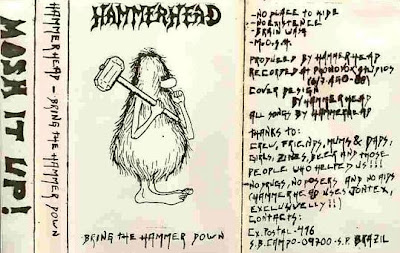 MOSH IT UP!
HAMMERHEAD - BRING THE HAMMER DOWN
HAMMERHEAD
BRING THE HAMMER DOWN
-NO PLACE TO HIDE
-NO EXISTENCE
-BRAIN WASH
-M.O.S.H.
PRODUCED BY HAMMERHEAD
RECORDED AT STUDIOS
COVER DESIGN
BY HAMMERHEAD
ALL SONGS BY HAMMERHEAD
THANKS TO:
CREW, FRIENDS, MUMS & DADS,
GIRLS, ZINES, BEER AND THOSE
PEOPLE WHO HELPED US!!!
NO DRUGS, NO POSERS AND NO AIDS
(HAMMERHEAD USES JONTEX,
EXCLUSIVELLY!!)
CONTACTS:
CX.POSTAL-416
S.B.CAMPO-09700-S.P. BRAZIL